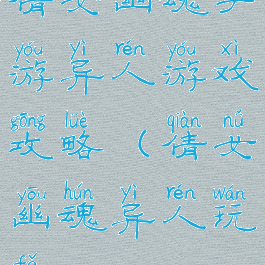 倩女幽魂手
yóu yì rén yóu xì
游异人游戏
gōng lüè qiàn nǚ
攻略（倩女
yōu hún yì rén wán
幽魂异人玩
fǎ